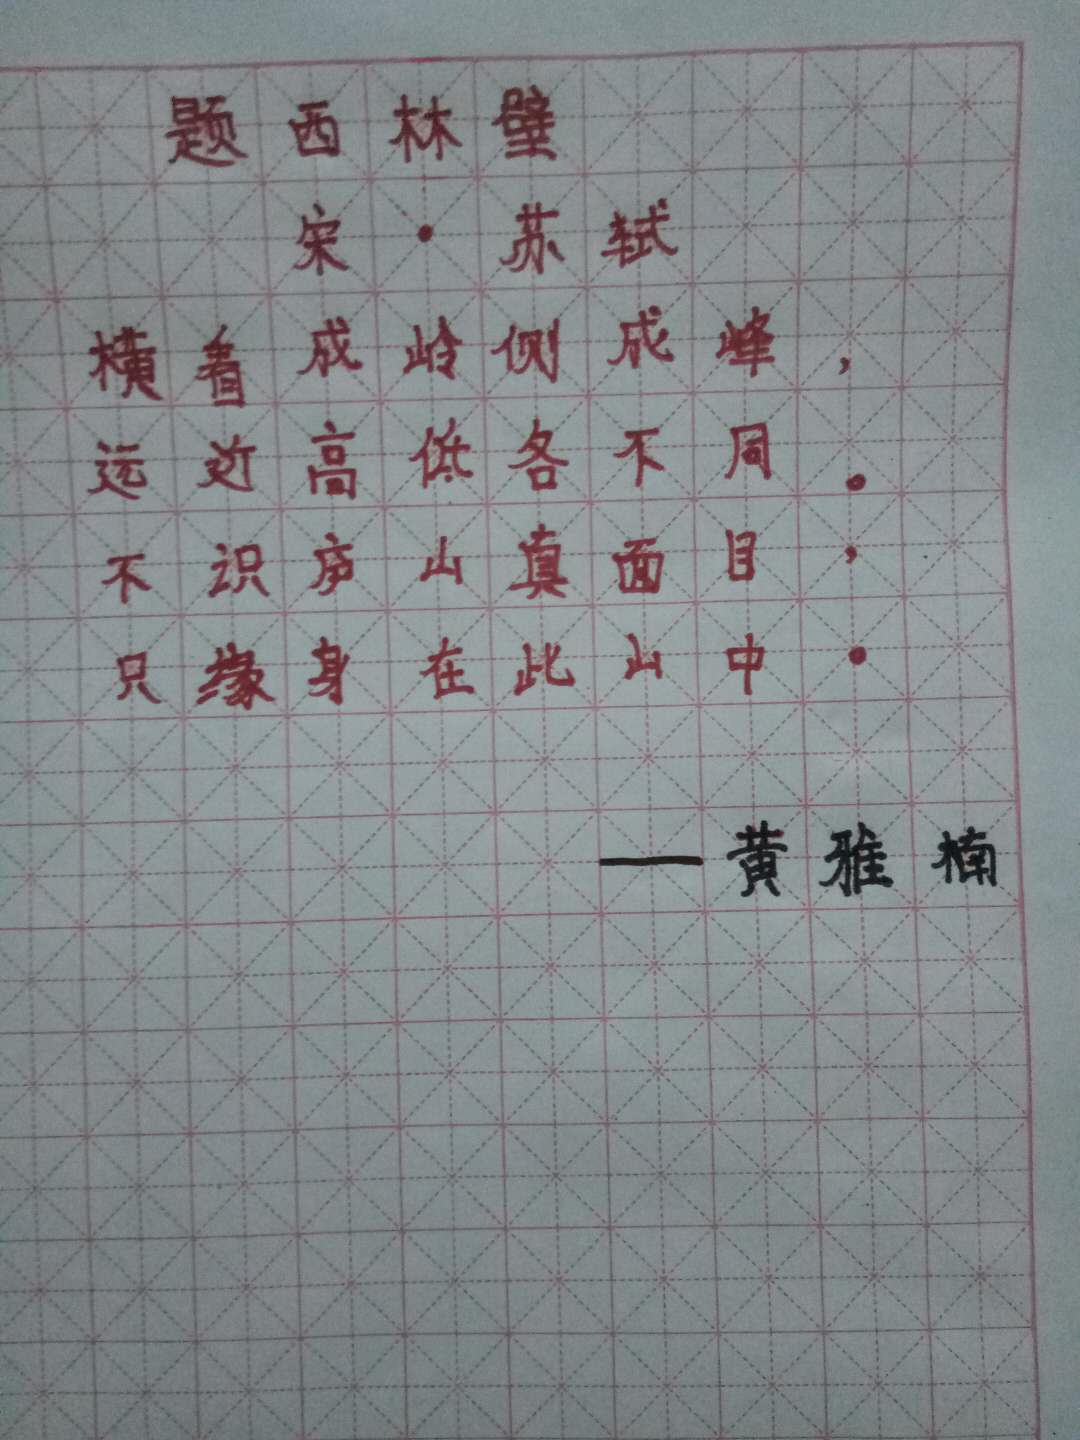 题西林壁
宋·苏轼
横看成岭侧成峰,
远近高低各不同。
不识庐山真面目,
只缘身在此山中。
——黄雅楠